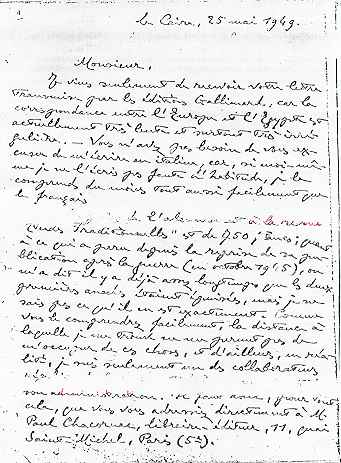 Le Caire, 25 mai 1949.
Monsieur,
Je viens seulement de recevoir votre lettre
transmise par les éditions Gallimard, car la
correspondance entre l'Europe et l'Egypte est
actuellement très lente et surtout très irré-
gulière. – Vous n'avez pas besoin de vous ex-
cuser de m'écrire en italien, car, si moi-mê-
me je ne l'écris pas faute d'habitude, je le
comprends du moins tout aussi facilement que
le français
à la revue
"Etudes Traditionnelles" est de 750 ; quant
à ce qui a paru depuis la reprise de sa pu-
blication après la guerre (en octobre 1945), on
m'a dit il y a déjà assez longtemps que les deux
premières années étaient épuisées, mais je ne
sais pas ce qu'il en est exactement. Comme
vous le comprendrez facilement, la distance à
laquelle je me trouve ne me permet pas de
m'occuper de ces choses, et d'ailleurs, en réa-
lité, je suis seulement un des collaborateurs
son administration. Je vous prie, pour tout
cela, que vous vous adressiez directement à M.
Paul Chacornac, libraire-éditeur, 11, quai
Saint-Michel, Paris (5e).